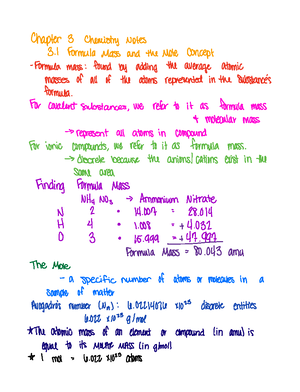 Chapter 3 Chemistry Notes
3.1 Formula Mass and the Mole Concept
-Formula mass: found by adding the average atomic
masses of all of the atoms represented in the substance's
formula.
For covalent substances, we refer to it as formula mass
& molecular mass
→ represent all atoms in compound
For ionic compounds, we refer to it as formula mass.
→ discrete because the anions/cations exist in the
same area
Finding Formula Mass
NH4 NO3 → Ammonium Nitrate
N 2 × 14.007 = 28.014
H 4 × 1.008 = + 4.032
O 3 × 15.999 = + 47.997
Formula Mass = 80.043 amu
The Mole
- a specific number of atoms or molecules in a
sample of matter
Avogadro's number (NA): 6.02214076 x10²³ discrete entities
6.022 x10²³ g/mol
★The atomic mass of an element or compound (in amu) is
equal to its molar mass (in g/mol)
★ 1 mol = 6.022 x10²³ atoms